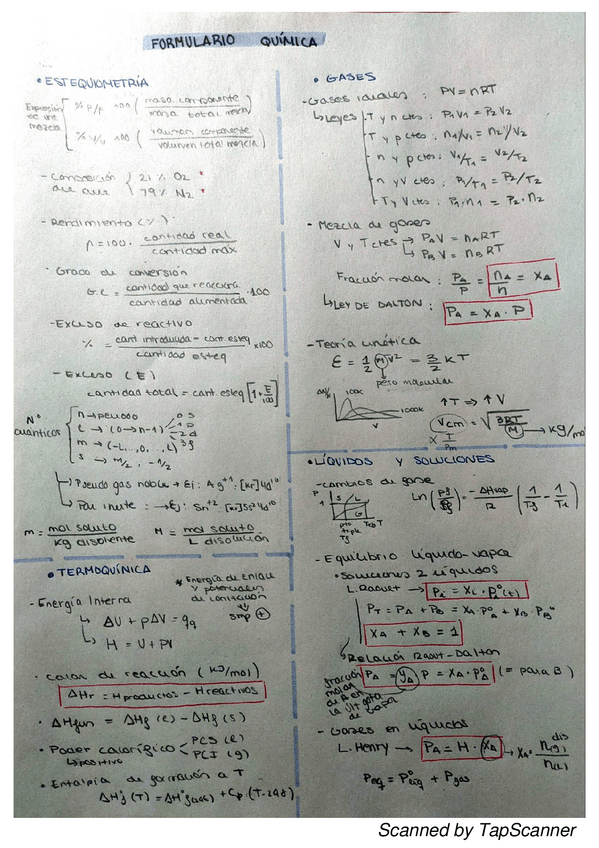 FORMULARIO QUÍMICA
• ESTEQUIOMETRÍA
Expresión de una mezcla
% P/P ·100 ( masa componente / masa total mezcla )
% V/V ·100 ( volumen componente / volumen total mezcla )
- Composición del aire { 21% O₂ *
79% N₂ *
- Rendimiento (%)
η = 100 · cantidad real / cantidad max
· Grado de conversión
G.C = cantidad que reacciona / cantidad alimentada · 100
- Exceso de reactivo
% = cant introducida - cant. esteq / cantidad esteq x100
- Exceso (E)
cantidad total = cant. esteq [1 + E/100]
Nº cuánticos
n → periodo
l → (0 → n-1) 0 s 1 p 2 d 3 f
m → (-L, ..0, .. L)
s → +1/2, -1/2
↳ Pseudo gas noble → Ej: Ag⁺¹: [Kr]4d¹⁰
↳ Par inerte: → Ej: Sn⁺² [Kr]5s²4d¹⁰
m = mol soluto / Kg disolvente M = mol soluto / L disolución
• TERMOQUÍMICA
* Energía de enlace y potenciales de ionización ↳ smp (+)
- Energía Interna
↳ ΔU + pΔV = qp
↳ H = U + PV
· Calor de reacción (KJ/mol)
ΔHr = Hproductos - Hreactivos
· ΔHfus = ΔHf (l) - ΔHf (s)
· Poder calorífico < PCS (l)
PCI (g)
↳ positivo
· Entalpía de formación a T
ΔHf°(T) = ΔHf°(298) + Cp (T-298)
• GASES
- Gases ideales : PV = nRT
↳ Leyes T y n ctes : P₁V₁ = P₂V₂
T y p ctes : n₁/V₁ = n₂/V₂
n y p ctes : V₁/T₁ = V₂/T₂
n y V ctes : P₁/T₁ = P₂/T₂
T y V ctes : P₁·n₁ = P₂·n₂
- Mezcla de gases
V y T ctes → PAV = nART
→ PBV = nBRT
Fracción molar : PA/P = nA/n = XA
↳ LEY DE DALTON : PA = XA · P
- Teoría cinética
Ɛ = 1/2 M V² = 3/2 K T
peso molecular
ΔN/N 100K
1000K
V
↑T ⇒ ↑V
Vcm = √3RT/M → Kg/mol
x T/Pm
• LÍQUIDOS Y SOLUCIONES
- Cambios de fase
P S L
G
pto triple Teb T
Ln ( ) = -ΔHvap / R ( - )
- Equilibrio líquido-vapor
• Soluciones 2 líquidos
L. Raoult → Pi = Xi · Pi°(t)
PT = PA + PB = XA·PA° + XB·PB°
XA + XB = 1
↳ Relación Raoult-Dalton
PA = yA P = XA · PA° (= para B)
fracción molar de A en la última gota de vapor
- Gases en líquidos
L. Henry → PA = H · XA → XA = n(g) dis / n(L)
Peq = P°liq + Pgas
Scanned by TapScanner